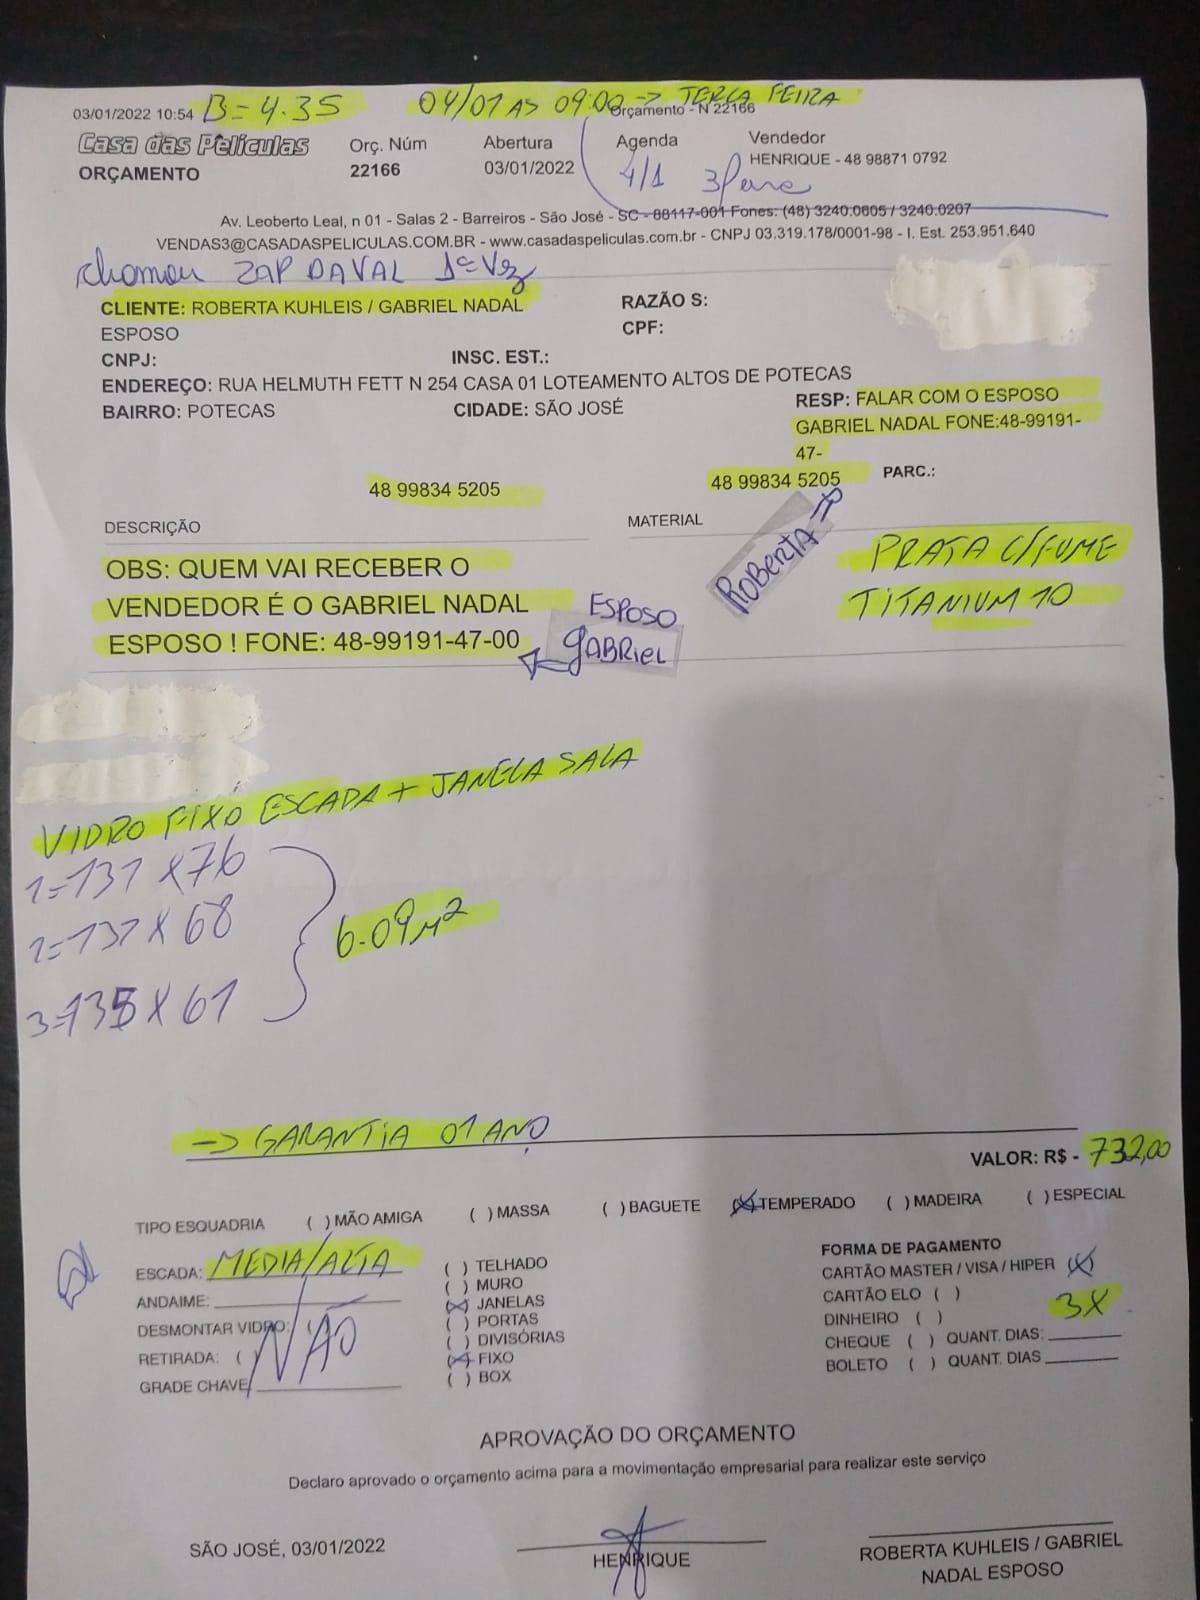 03/01/2022 10:54 B= 4.35 04/01 AS 09:00 -> TERÇA FEIRA
Orçamento - N 22166
Casa das Películas Orç. Núm Abertura Agenda Vendedor
ORÇAMENTO 22166 03/01/2022 4/1 HENRIQUE - 48 98871 0792
Av. Leoberto Leal, n 01 - Salas 2 - Barreiros - São José - SC - 88117-001 Fones: (48) 3240.0605 / 3240.0207
VENDAS3@CASADASPELICULAS.COM.BR - www.casadaspeliculas.com.br - CNPJ 03.319.178/0001-98 - I. Est. 253.951.640
chamou ZAP DAVAL 1ª Vez
CLIENTE: ROBERTA KUHLEIS / GABRIEL NADAL RAZÃO S:
ESPOSO CPF:
CNPJ: INSC. EST.:
ENDEREÇO: RUA HELMUTH FETT N 254 CASA 01 LOTEAMENTO ALTOS DE POTECAS
BAIRRO: POTECAS CIDADE: SÃO JOSÉ RESP: FALAR COM O ESPOSO
GABRIEL NADAL FONE:48-99191-
47-
48 99834 5205 48 99834 5205 PARC.:
DESCRIÇÃO MATERIAL
ROBERTA
OBS: QUEM VAI RECEBER O PRATA C/FUME
VENDEDOR É O GABRIEL NADAL ESPOSO TITANIUM 10
ESPOSO ! FONE: 48-99191-47-00 GABRIEL
VIDRO FIXO ESCADA + JANELA SALA
1=131 X 76
2=131 X 68 6.09 M²
3=135 X 61
-> GARANTIA 01 ANO
VALOR: R$ - 732,00
TIPO ESQUADRIA ( ) MÃO AMIGA ( ) MASSA ( ) BAGUETE (X) TEMPERADO ( ) MADEIRA ( ) ESPECIAL
ESCADA: MEDIA/ALTA ( ) TELHADO FORMA DE PAGAMENTO
ANDAIME: ( ) MURO CARTÃO MASTER / VISA / HIPER (X)
DESMONTAR VIDRO: ( NÃO (X) JANELAS CARTÃO ELO ( ) 3X
RETIRADA: ( ) ( ) PORTAS DINHEIRO ( )
GRADE CHAVE ( ) DIVISÓRIAS CHEQUE ( ) QUANT. DIAS:
(X) FIXO BOLETO ( ) QUANT. DIAS
( ) BOX
APROVAÇÃO DO ORÇAMENTO
Declaro aprovado o orçamento acima para a movimentação empresarial para realizar este serviço
SÃO JOSÉ, 03/01/2022 HENRIQUE ROBERTA KUHLEIS / GABRIEL
NADAL ESPOSO